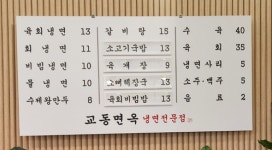 육회냉면 13
회냉면 11
비빔냉면 10
물냉면 10
수제왕만두 8
갈비탕 15
소고기국밥 13
육개장 9
13
육회비빔밥 13
수육 40
육회 35
냉면사리 5
소주·맥주 5
음료 2
교동면옥 냉면전문점